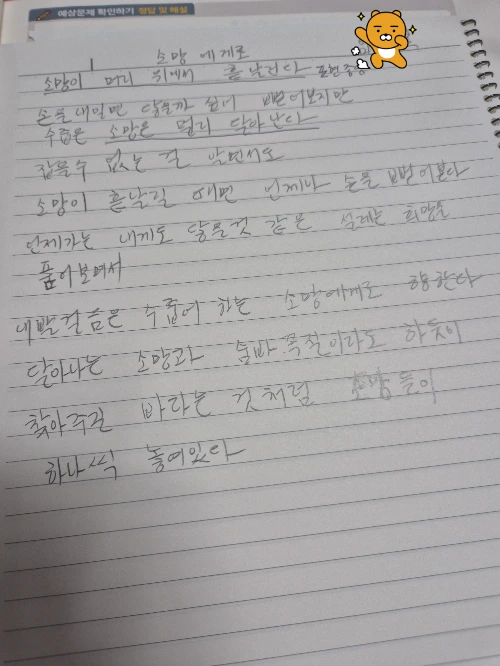 예상문제 확인하기 정답 및 해설
소망에게로
소망이 머리 위에서 흩날린다
손을 내밀면 닿을까 싶어 뻗어보지만
수줍은 소망은 멀리 달아난다
잡을 수 없는 걸 알면서도
소망이 흩날릴 때면 언제나 손을 뻗어본다
언제가는 내게도 닿을것 같은 설레는 희망을
품어보며서
내 발걸음은 수줍어 하는 소망에게로 향한다
달아나는 소망과 숨바꼭질이라도 하듯이
찾아주길 바라는 것처럼 소망들이
하나씩 놓여있다